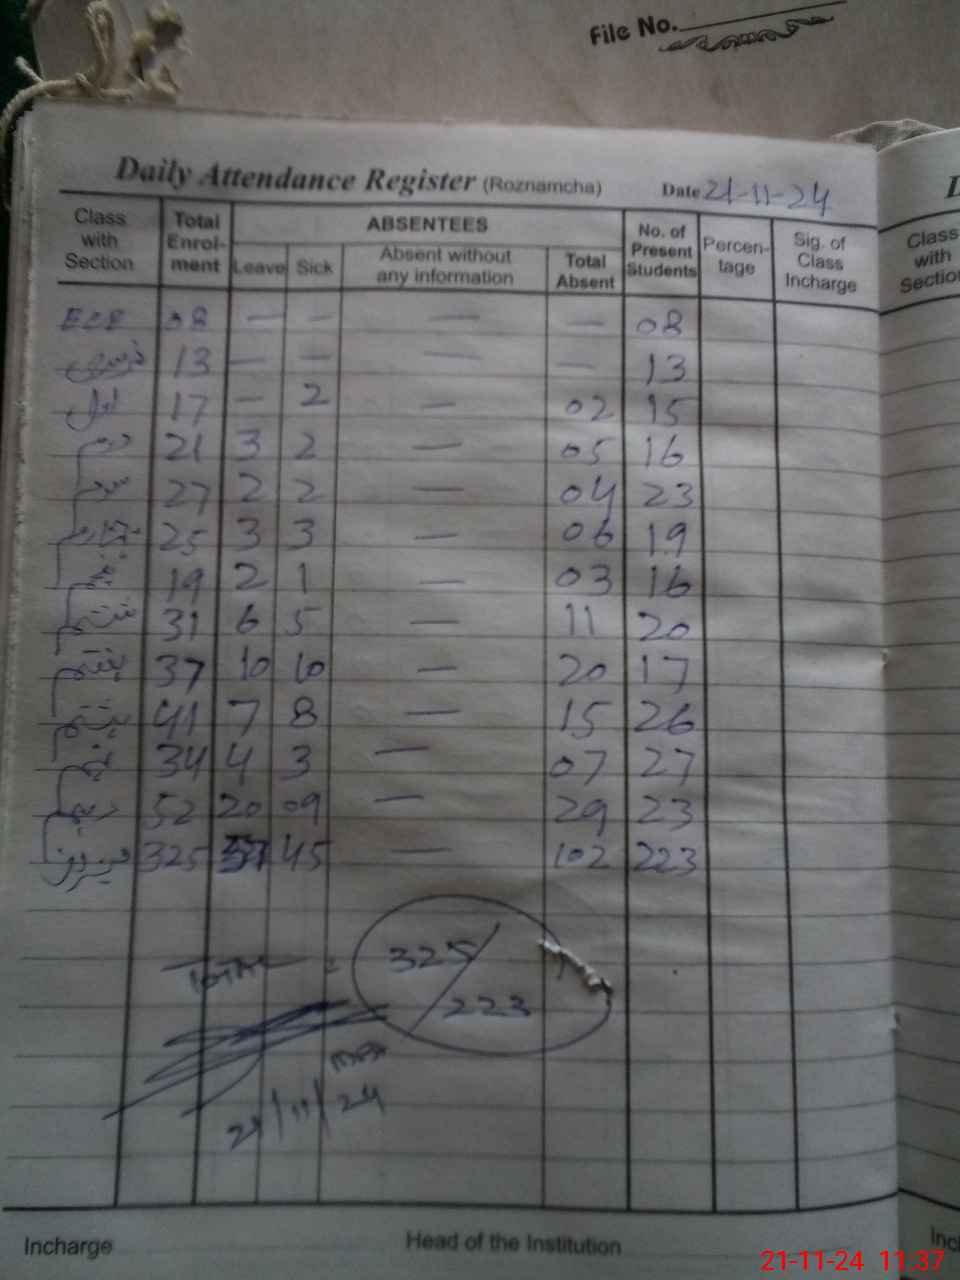 File No.
Daily Attendance Register (Roznamcha) Date 21-11-24
Class with Section | Total Enrol-ment | ABSENTEES | No. of Present Students | Percen-tage | Sig. of Class Incharge
Leave | Sick | Absent without any information | Total Absent
ECE 08 — — — — 08
13 — — — — 13
اول 17 — 2 — 02 15
دوم 21 3 2 — 05 16
سوم 27 2 2 — 04 23
چہارم 25 3 3 — 06 19
پنجم 19 2 1 — 03 16
ششم 31 6 5 — 11 20
ہفتم 37 10 10 — 20 17
ہشتم 41 7 8 — 15 26
نہم 34 4 3 — 07 27
دہم 52 20 09 — 29 23
325 57 45 — 102 223
TOTAL = 325/223
21/11/24
Incharge Head of the Institution
Class with Section
21-11-24 11:37